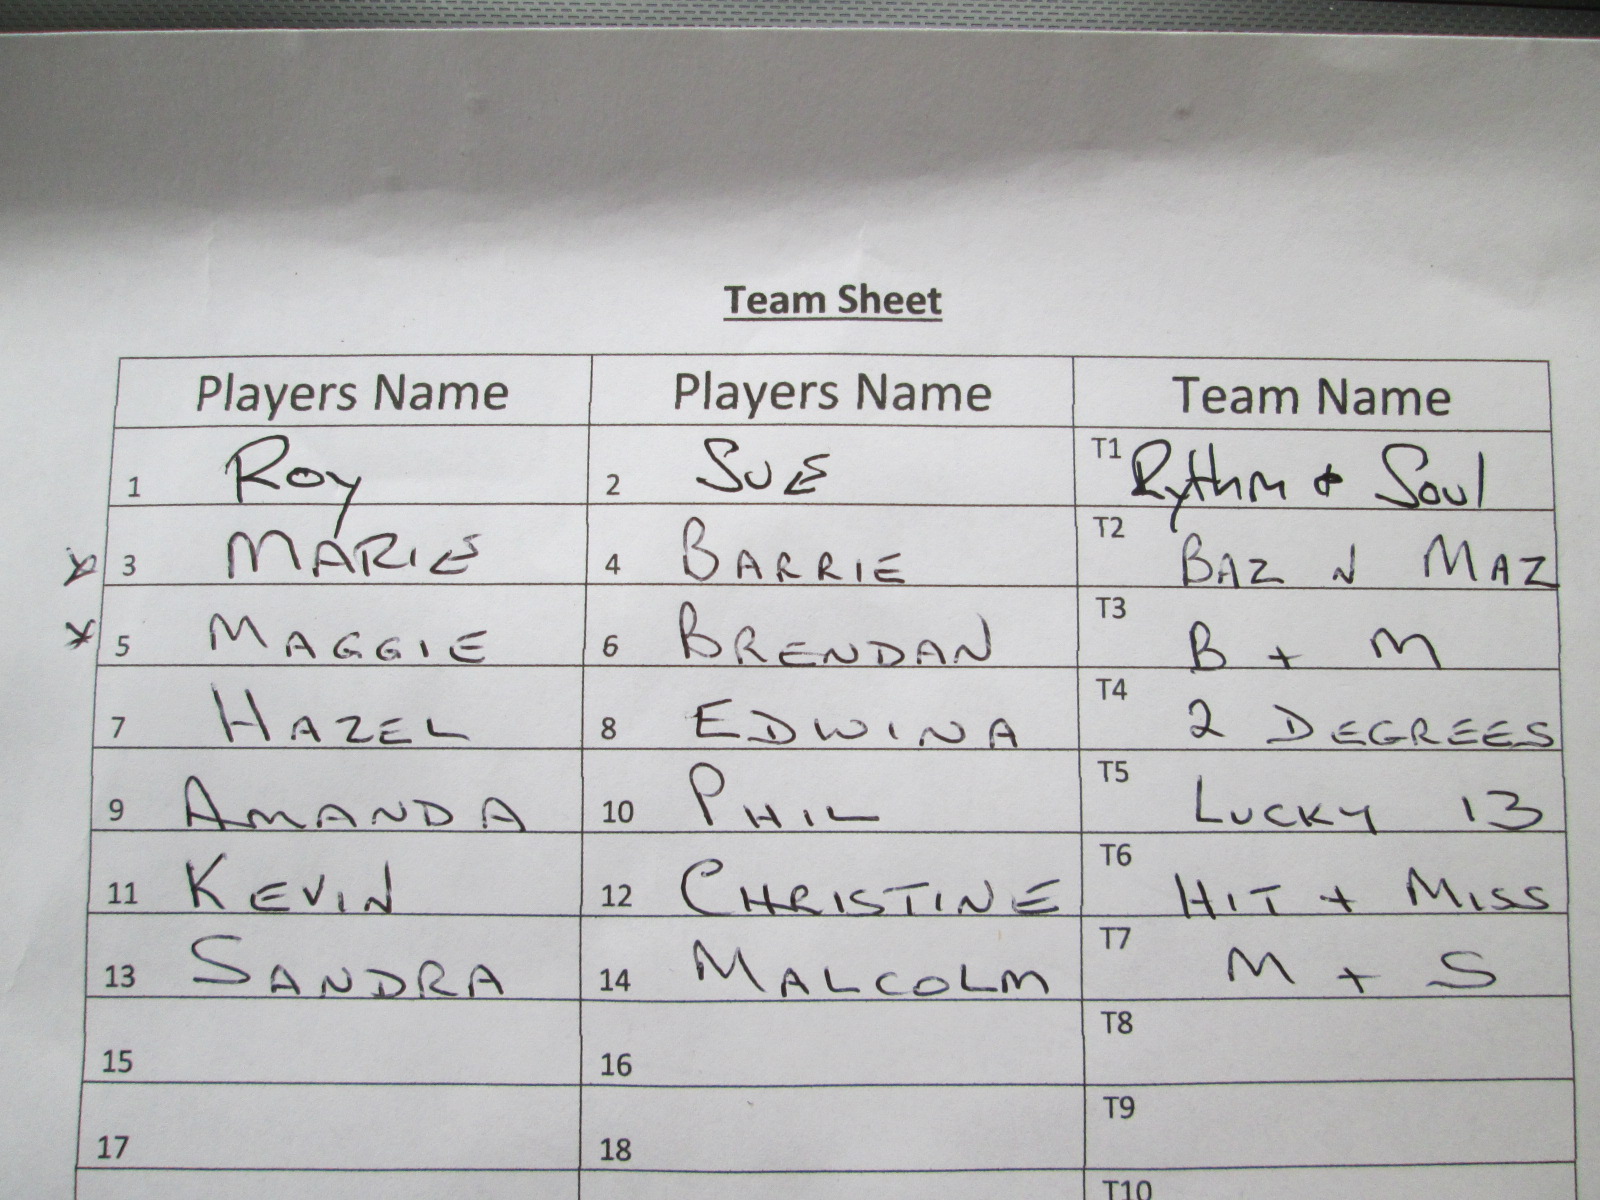 Team Sheet
Players Name Players Name Team Name
1 Roy 2 SUE T1 Rythm & Soul
3 MARIE 4 BARRIE T2 BAZ N MAZ
5 MAGGIE 6 BRENDAN T3 B + M
7 HAZEL 8 EDWINA T4 2 DEGREES
9 AMANDA 10 PHIL T5 LUCKY 13
11 KEVIN 12 CHRISTINE T6 HIT + MISS
13 SANDRA 14 MALCOLM T7 M + S
15 16 T8
17 18 T9
T10